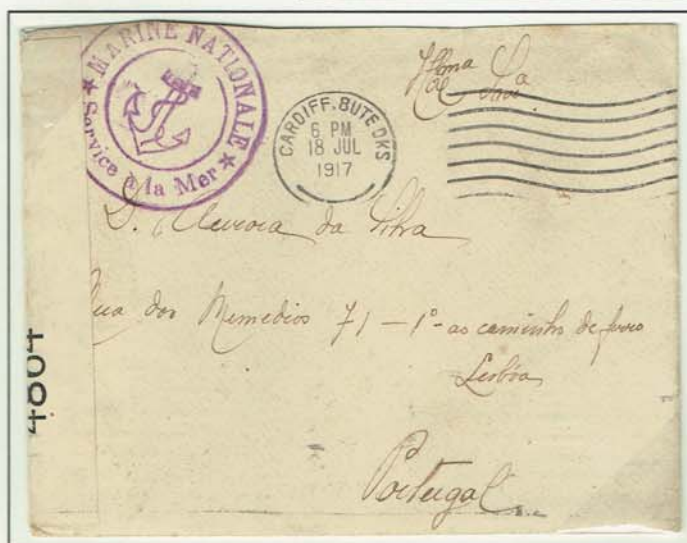 MARINE NATIONALE
Service à la Mer
CARDIFF. BUTE DKS
6 PM
18 JUL
1917
D. Aurora da Silva
Rua dos Remedios 71 – 1º - ao caminho de ferro
Lisbôa
Portugal
4804